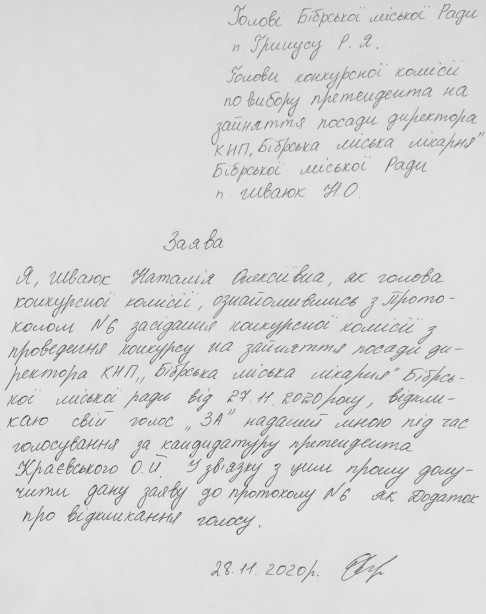 Голові Бібрської міської Ради
п. Гринусу Р. Я.
Голови конкурсної комісії
по вибору претендента на
зайняття посади директора
КНП „Бібрська міська лікарня"
Бібрської міської Ради
п. Шваюк Н О.
Заява
Я, Шваюк Наталія Олексіївна, як голова
конкурсної комісії, ознайомившись з Прото-
колом №6 засідання конкурсної комісії з
проведення конкурсу на зайняття посади ди-
ректора КНП „Бібрська міська лікарня" Бібрсь-
кої міської ради від 27.11.2020 року, відкли-
каю свій голос „ЗА" наданий мною під час
голосування за кандидатуру претендента
Краєвського О.Й. У зв'язку з цим прошу долу-
чити дану заяву до протоколу №6 як Додаток
про відкликання голосу.
28.11.2020р.